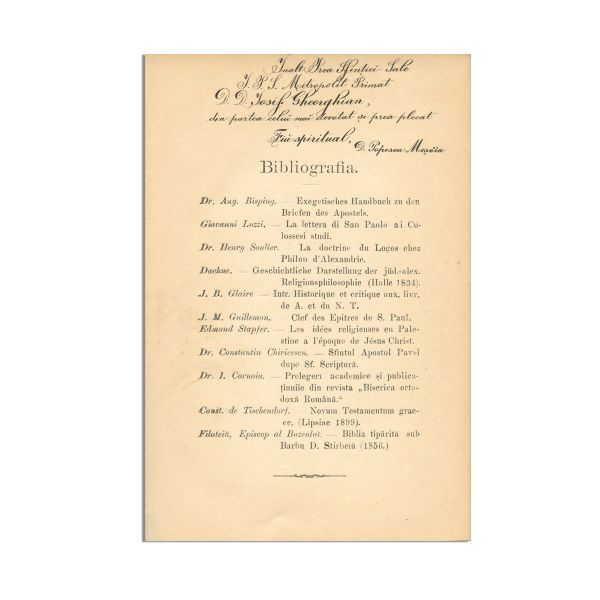 Inalt Prea Sfinției Sale
I. P. S. Mitropolit Primat
D. D. Iosif Gheorghian,
din partea celui mai devotat și prea plecat
Fiu spiritual.
D. Popescu-Moșóia
Bibliografia.
Dr. Aug. Bisping. — Exegetisches Handbuch zu den
Briefen des Apostels.
Giovanni Luzzi. — La lettera di San Paolo ai Co-
lossesi studi.
Dr. Henry Soulier. — La doctrine du Logos chez
Philon d'Alexandrie.
Daehne. — Geschichtliche Darstellung der jüd.-alex.
Religionsphilosophie (Halle 1834).
J. B. Glaire — Intr. Historique et critique aux. livr.
de A. et du N. T.
J. M. Guillemon. — Clef des Epitres de S. Paul.
Edmond Stapfer. — Les idées religieuses en Pale-
stine a l'époque de Jésus Christ.
Dr. Constantin Chiricescu. — Sfîntul Apostol Pavel
dupe Sf. Scriptură.
Dr. I. Cornoiu. — Prelegeri academice și publica-
țiunile din revista „Biserica orto-
doxă Română.“
Const. de Tischendorf. — Novum Testamentum grae-
ce. (Lipsiae 1899).
Filoteiŭ, Episcop al Buzeului. — Biblia tipărită sub
Barbu D. Stirbeiŭ (1856.)